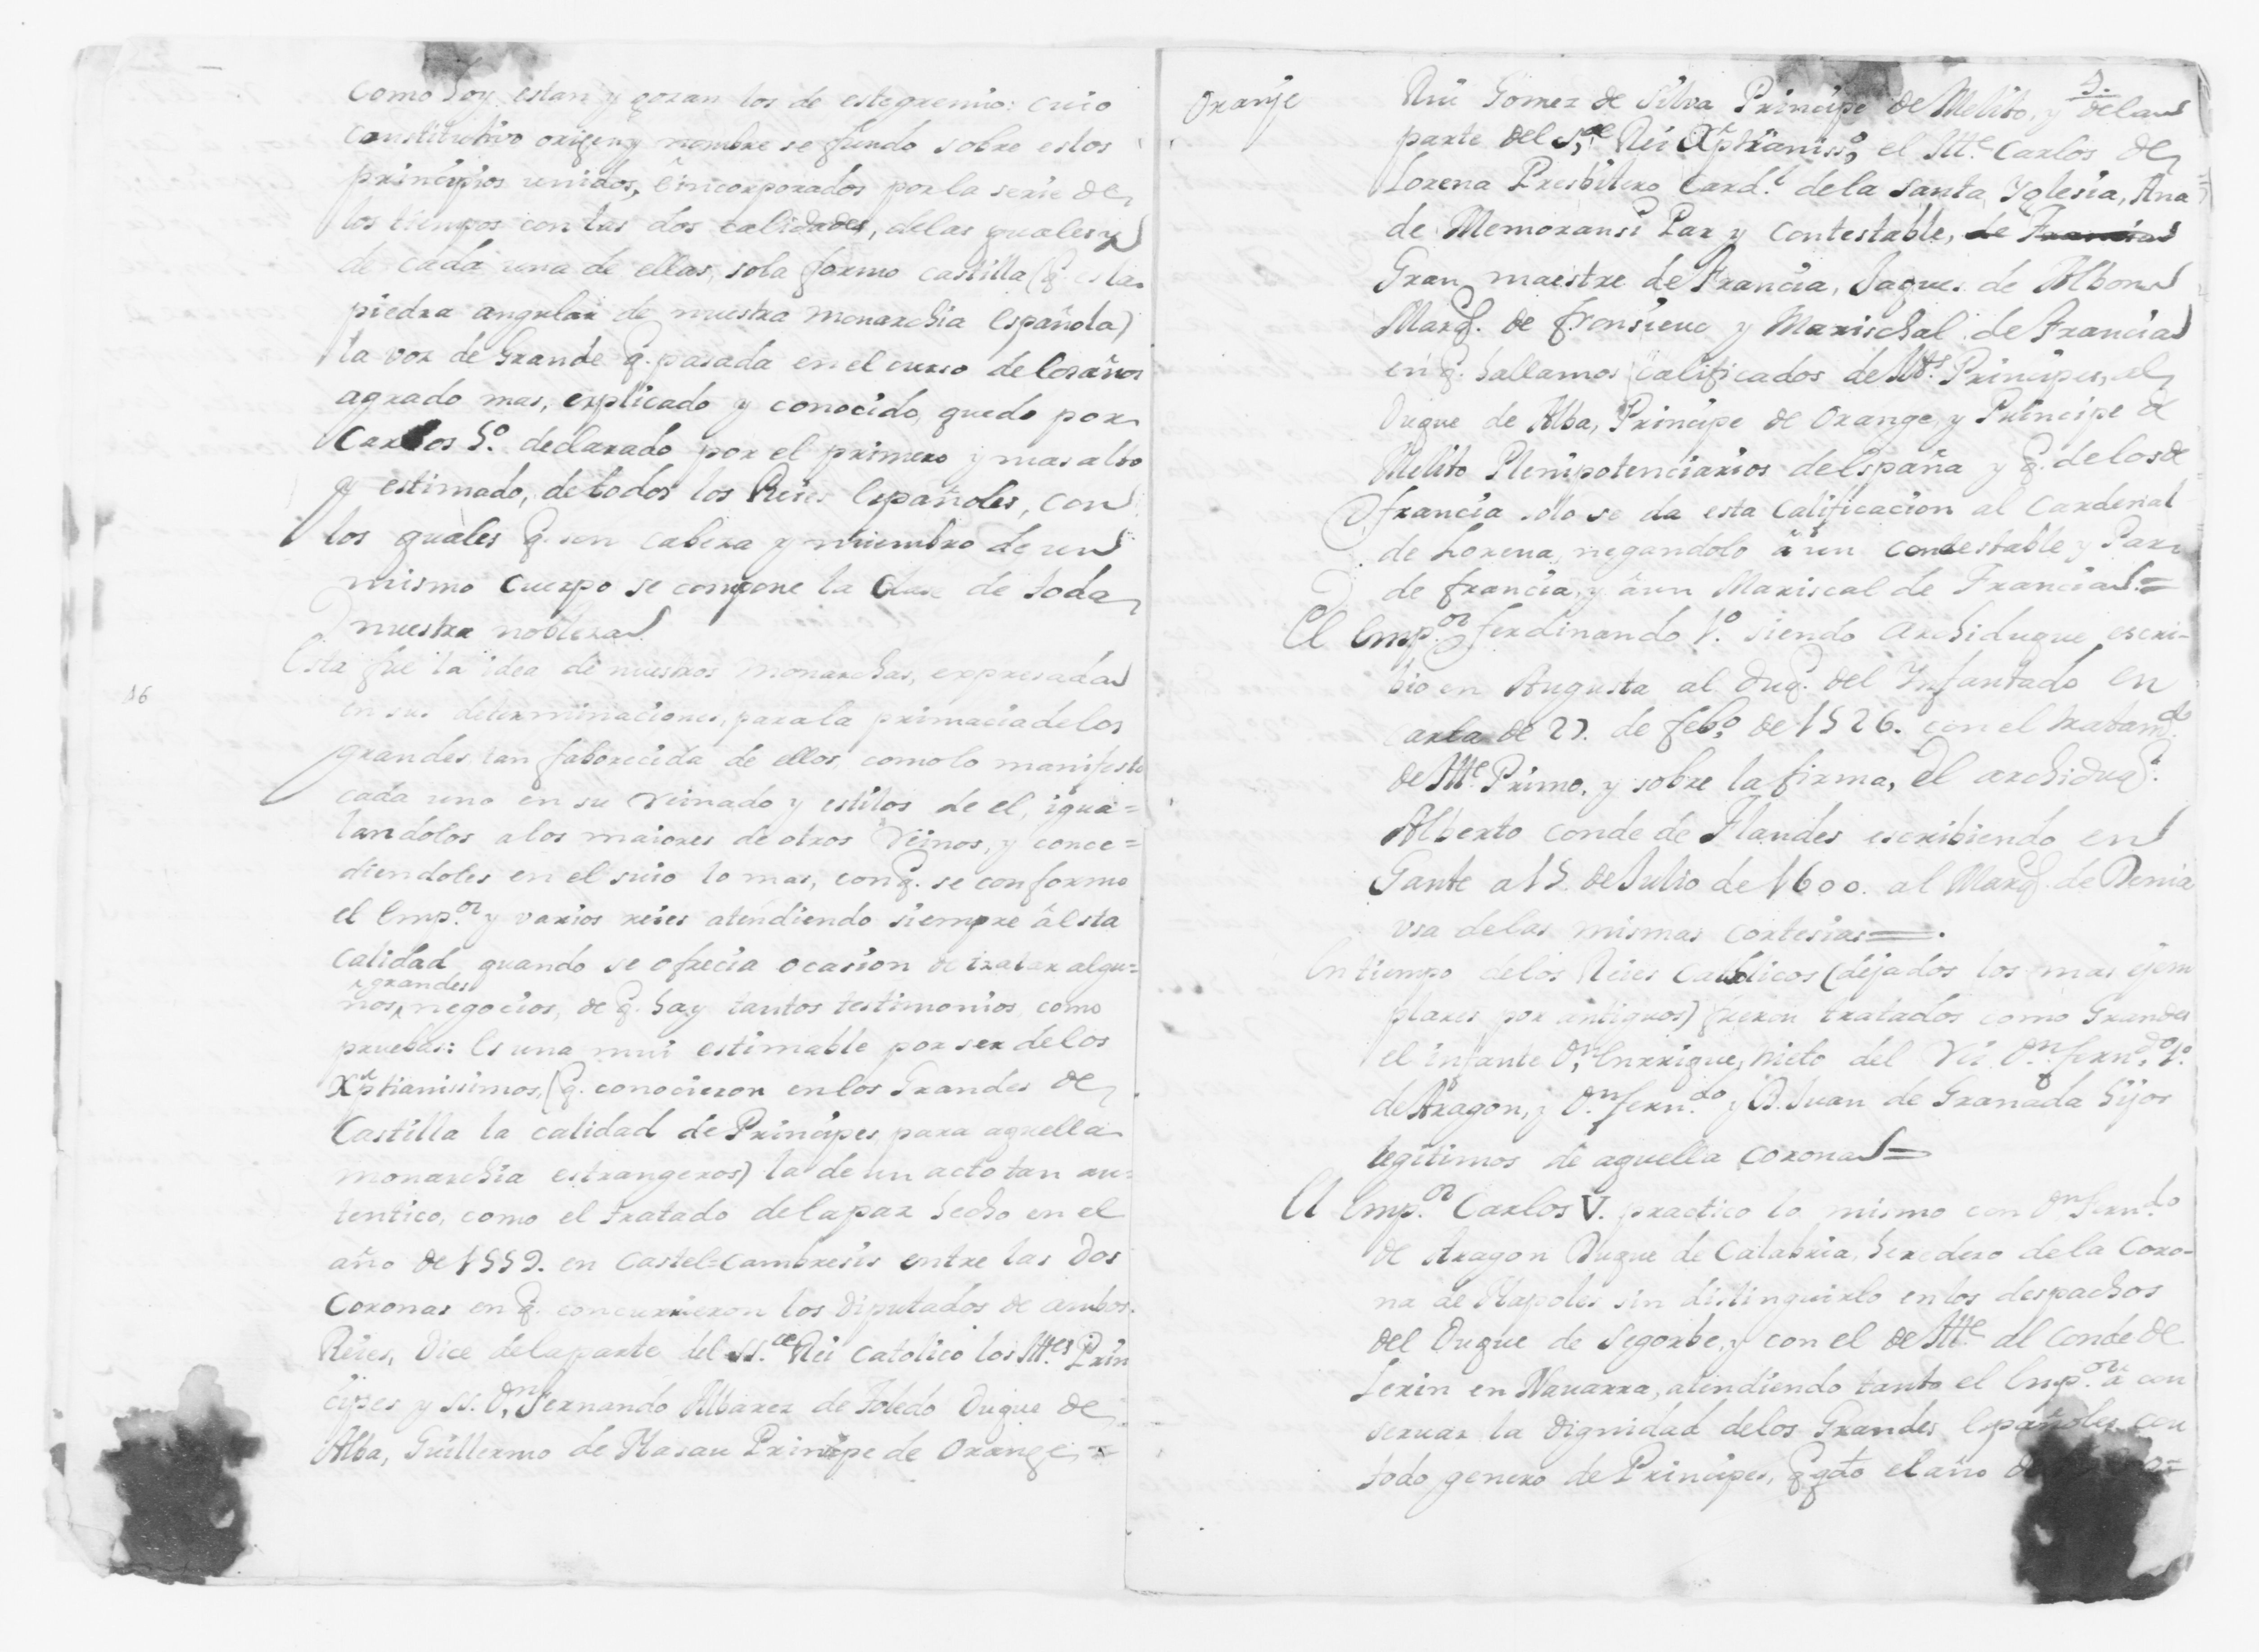 como hoy estan y gozan los de este gremio: cuio
constitutivo origen y nombre se fundo sobre estos
principios unidos, è incorporados por la serie de
los tiempos con las dos calidades, delas quales y
de cada una de ellas, sola formo castilla (q. es la
piedra angular de nuestra monarchia Española)
la voz de Grande q. pasada en el curso de los años
agrado mas, explicado y conocido, quedo por
Carlos 5.º declarado por el primero y mas alto
y estimado, de todos los Reies Españoles, con
los quales q. son cabeza y miembro de un
mismo cuerpo se compone la Clase de toda
nuestra nobleza.
16
Esta fue la idea de nuestros monarchas, expresada
en sus determinaciones, para la primacia delos
grandes tan faborecida de ellos, como lo manifesto
cada uno en su reinado y estilos de el, igua=
landolos a los maiores de otros Reinos, y conce=
diendoles en el suio lo mas, con q. se conformo
el Emp.or y varios reies atendiendo siempre â esta
calidad quando se ofrecia ocasion de tratar algu=
grandes
nos negocios, de q. hay tantos testimonios como
pruebas: Es una mui estimable por ser delos
Xptianissimos, (q. conocieron en los Grandes de
Castilla la calidad de Principes, para aquella
monarchia estrangeros) la de un acto tan au=
tentico, como el tratado dela paz hecho en el
año de 1559. en Castel=Cambresis entre las dos
Coronas en q. concurrieron los Diputados de ambos
Reies, Dice dela parte del SS.ce Rei Catolico los Ill.es Prin
cipes y SS. D.n Fernando Albarez de Toledo Duque de
Alba, Guillermo de Nasau Principe de Orange =
Oranje
5.
Rui Gomez de Silva Principe de Melito, y dela
parte del S.ce Rei Xptianiss.o el Ill.e Carlos de
Lorena Presbitero Card.l dela Santa Yglesia, Ana
de Memoransi Par y Contestable, de Francia
Gran maestre de Francia, Jaques de Albon
Marq. de Fronsieue y Marischal de Francia
en q. hallamos calificados de Ill.es Principes, al
Duque de Alba, Principe de Orange, y Principe de
Melito Plenipotenciarios de España y q. delos de
francia solo se da esta calificacion al Cardenal
de Lorena, negandolo â un condestable y Par
de francia, y âun Mariscal de Francia =
El Emp.or Ferdinando 1.º siendo Archiduque, escri-
bio en Augusta al Duq. del Infantado en
carta de 27. de feb.o de 1526. con el tratam.to
de Ill.e Primo, y sobre la firma, El archiduq.e
Alberto conde de Flandes escribiendo en
Gante a 15. de Julio de 1600. al Marq. de Denia
usa delas mismas cortesias =.
En tiempo delos Reies Catolicos (dejados los mas ejem
plares por antiguos) fueron tratados como Grandes
el infante D.n Enrrique, nieto del Rei D.n fern.do 1.º
de Aragon, y D.n fern.do y D. Juan de Granada hijos
legitimos de aquella corona =
El Emp.or Carlos V. practico lo mismo con D.n Fern.do
de Aragon Duque de Calabria, heredero dela Coro-
na de Napoles sin distinguirlo en los despachos
del Duque de Segorbe, y con el de Ill.e al Conde de
Lerin en Navarra, atendiendo tanto el Emp.or â con
servar la dignidad delos Grandes Españoles con
todo genero de Principes, q. q.do el año